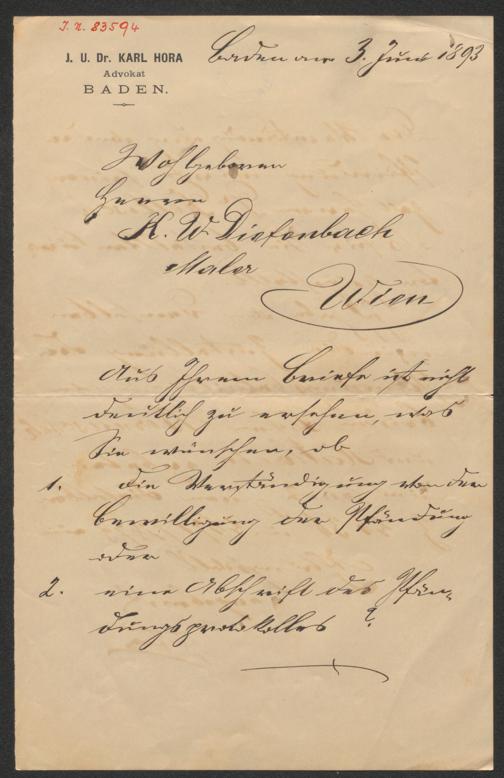 I. N. 83594
J. U. Dr. KARL HORA
Advokat
BADEN.
Baden am 3. Juni 1893
Wohlgeboren
Herrn
K. W. Diefenbach
Maler
Wien
Aus Ihrem Briefe ist nicht
deutlich zu ersehen, was
Sie wünschen, ob
1. die Verständigung von der
Bewilligung der Pfändung
oder
2. eine Abschrift des Pfän-
dungsprotokolles ?